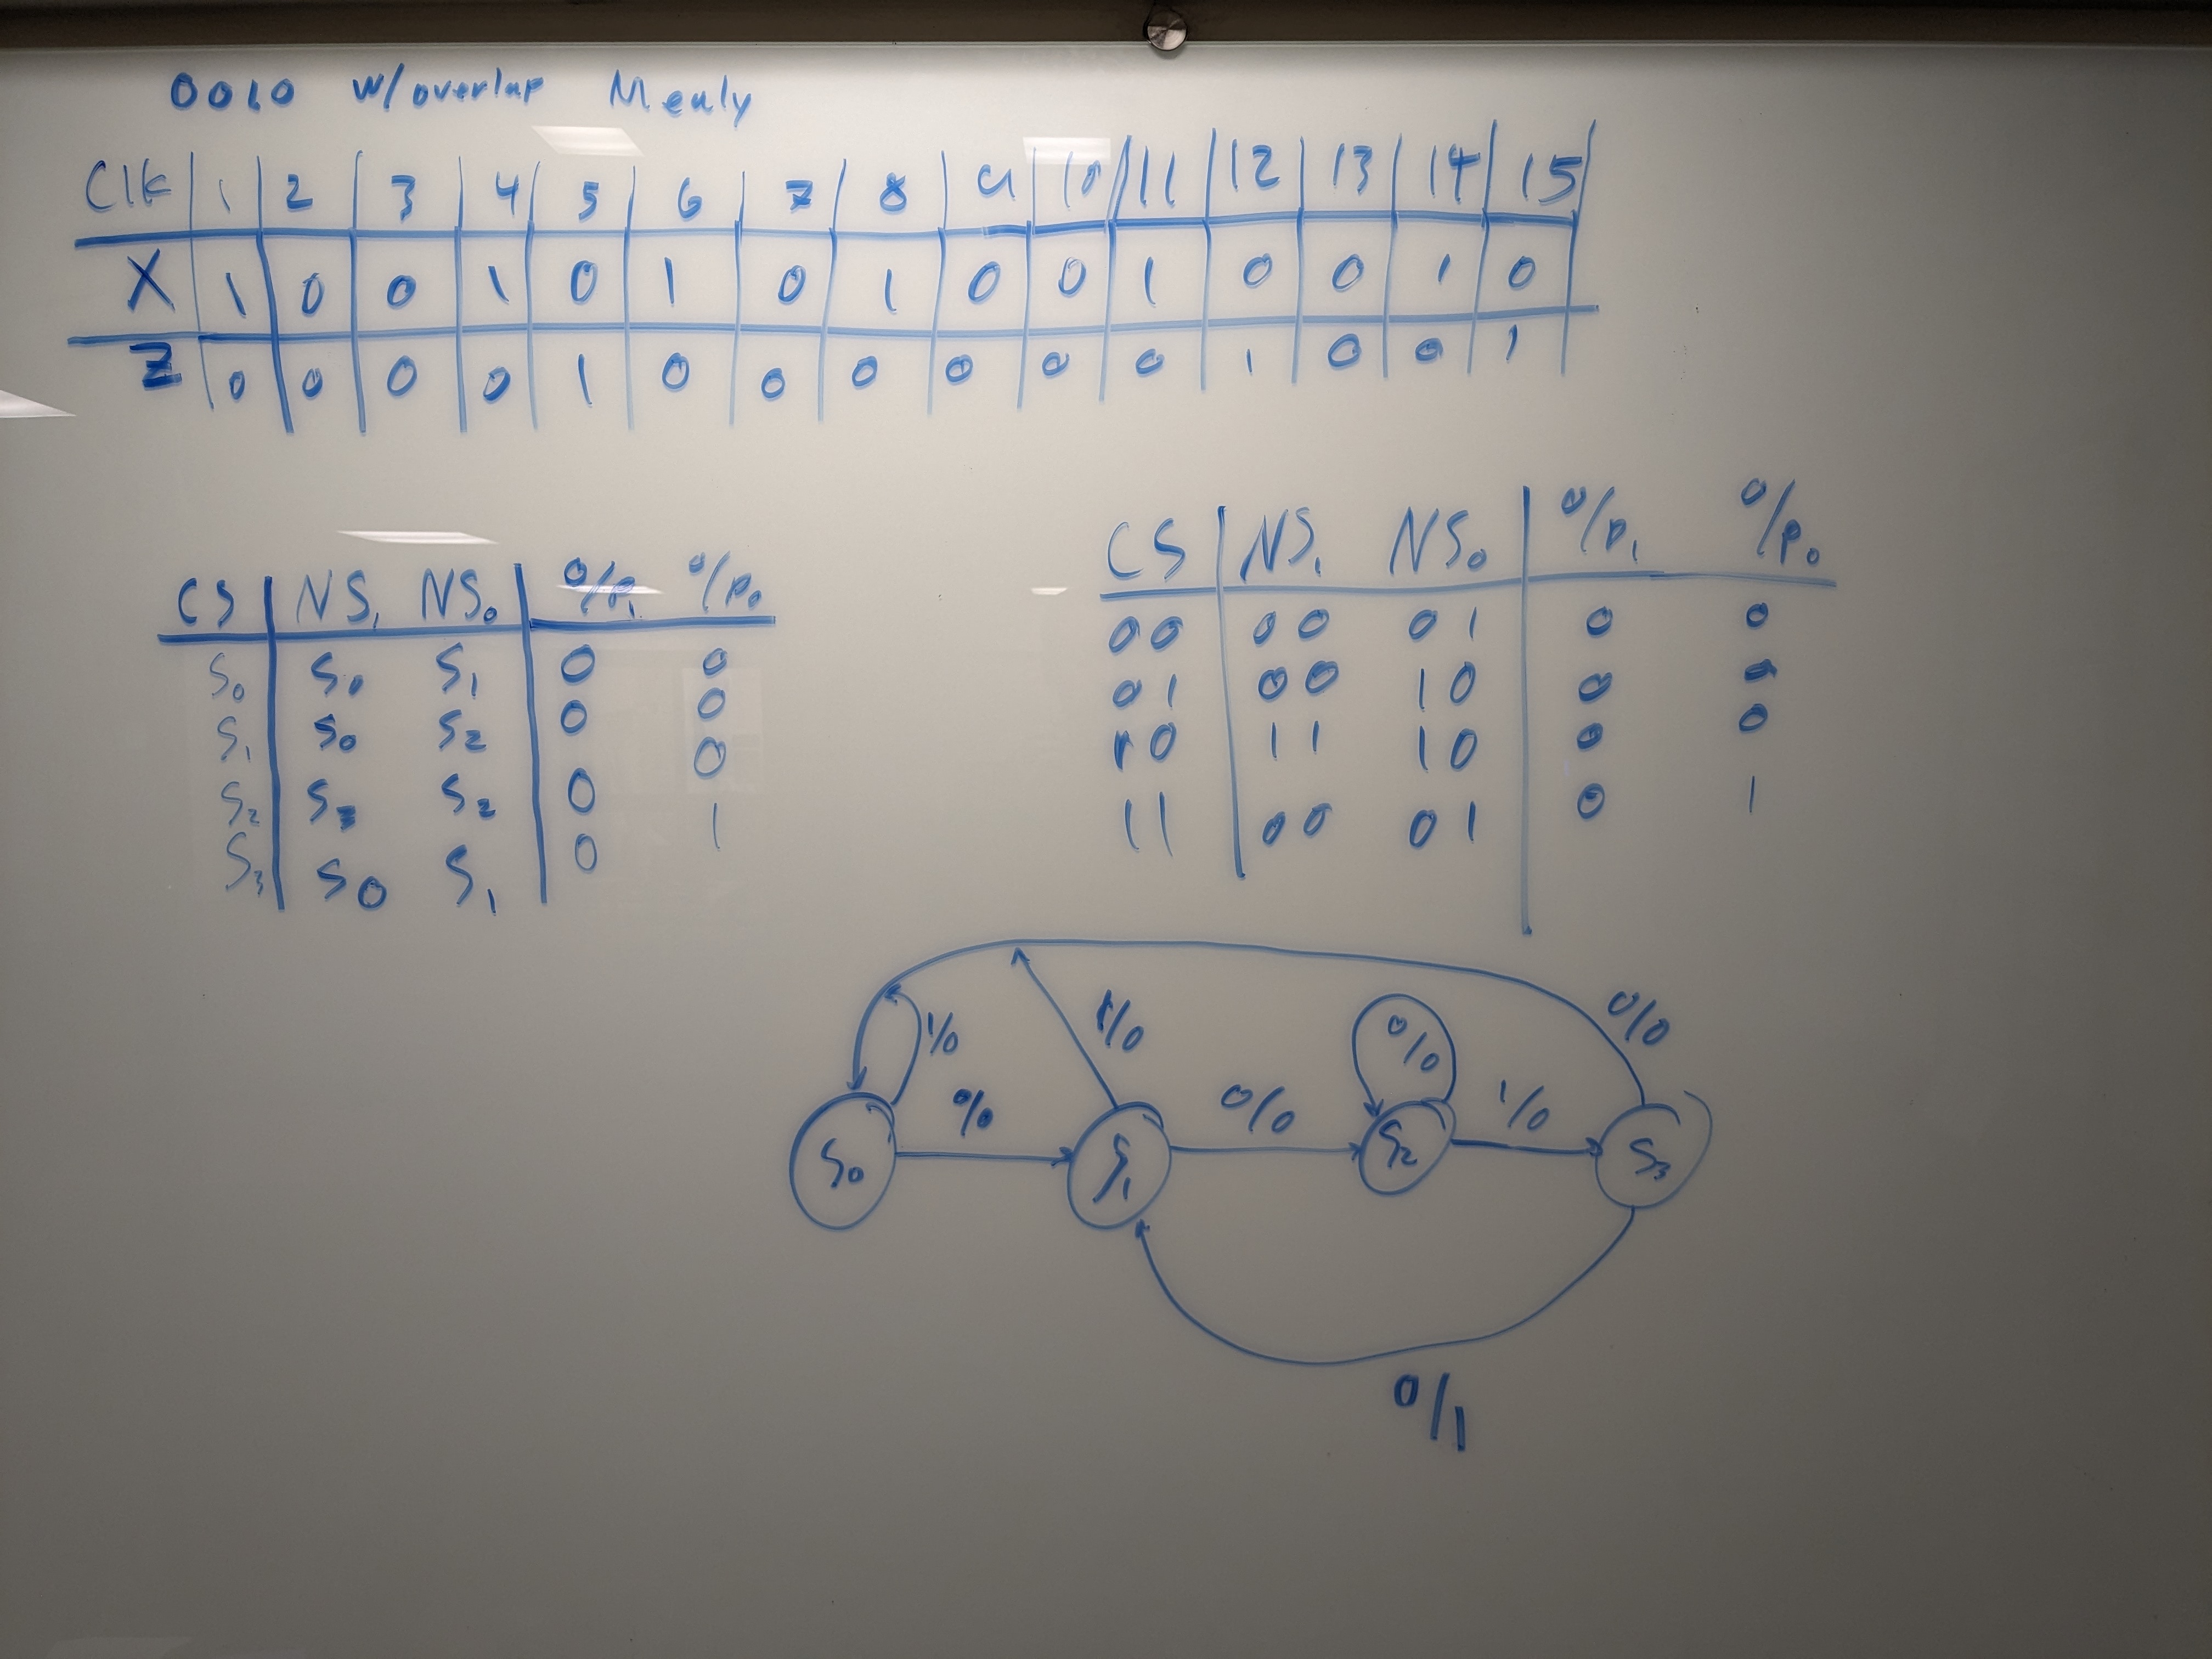 0010 w/overlap Mealy
Clk 1 2 3 4 5 6 7 8 9 10 11 12 13 14 15
X 1 0 0 1 0 1 0 1 0 0 1 0 0 1 0
Z 0 0 0 0 1 0 0 0 0 0 0 1 0 0 1
CS NS₁ NS₀ O/P₁ O/P₀
S₀ S₀ S₁ 0 0
S₁ S₀ S₂ 0 0
S₂ S₃ S₂ 0 0
S₃ S₀ S₁ 0 1
CS NS₁ NS₀ O/P₁ O/P₀
00 00 01 0 0
01 00 10 0 0
10 11 10 0 0
11 00 01 0 1
1/0 1/0 0/0 0/0
0/0 0/0 1/0
S₀ S₁ S₂ S₃
0/1